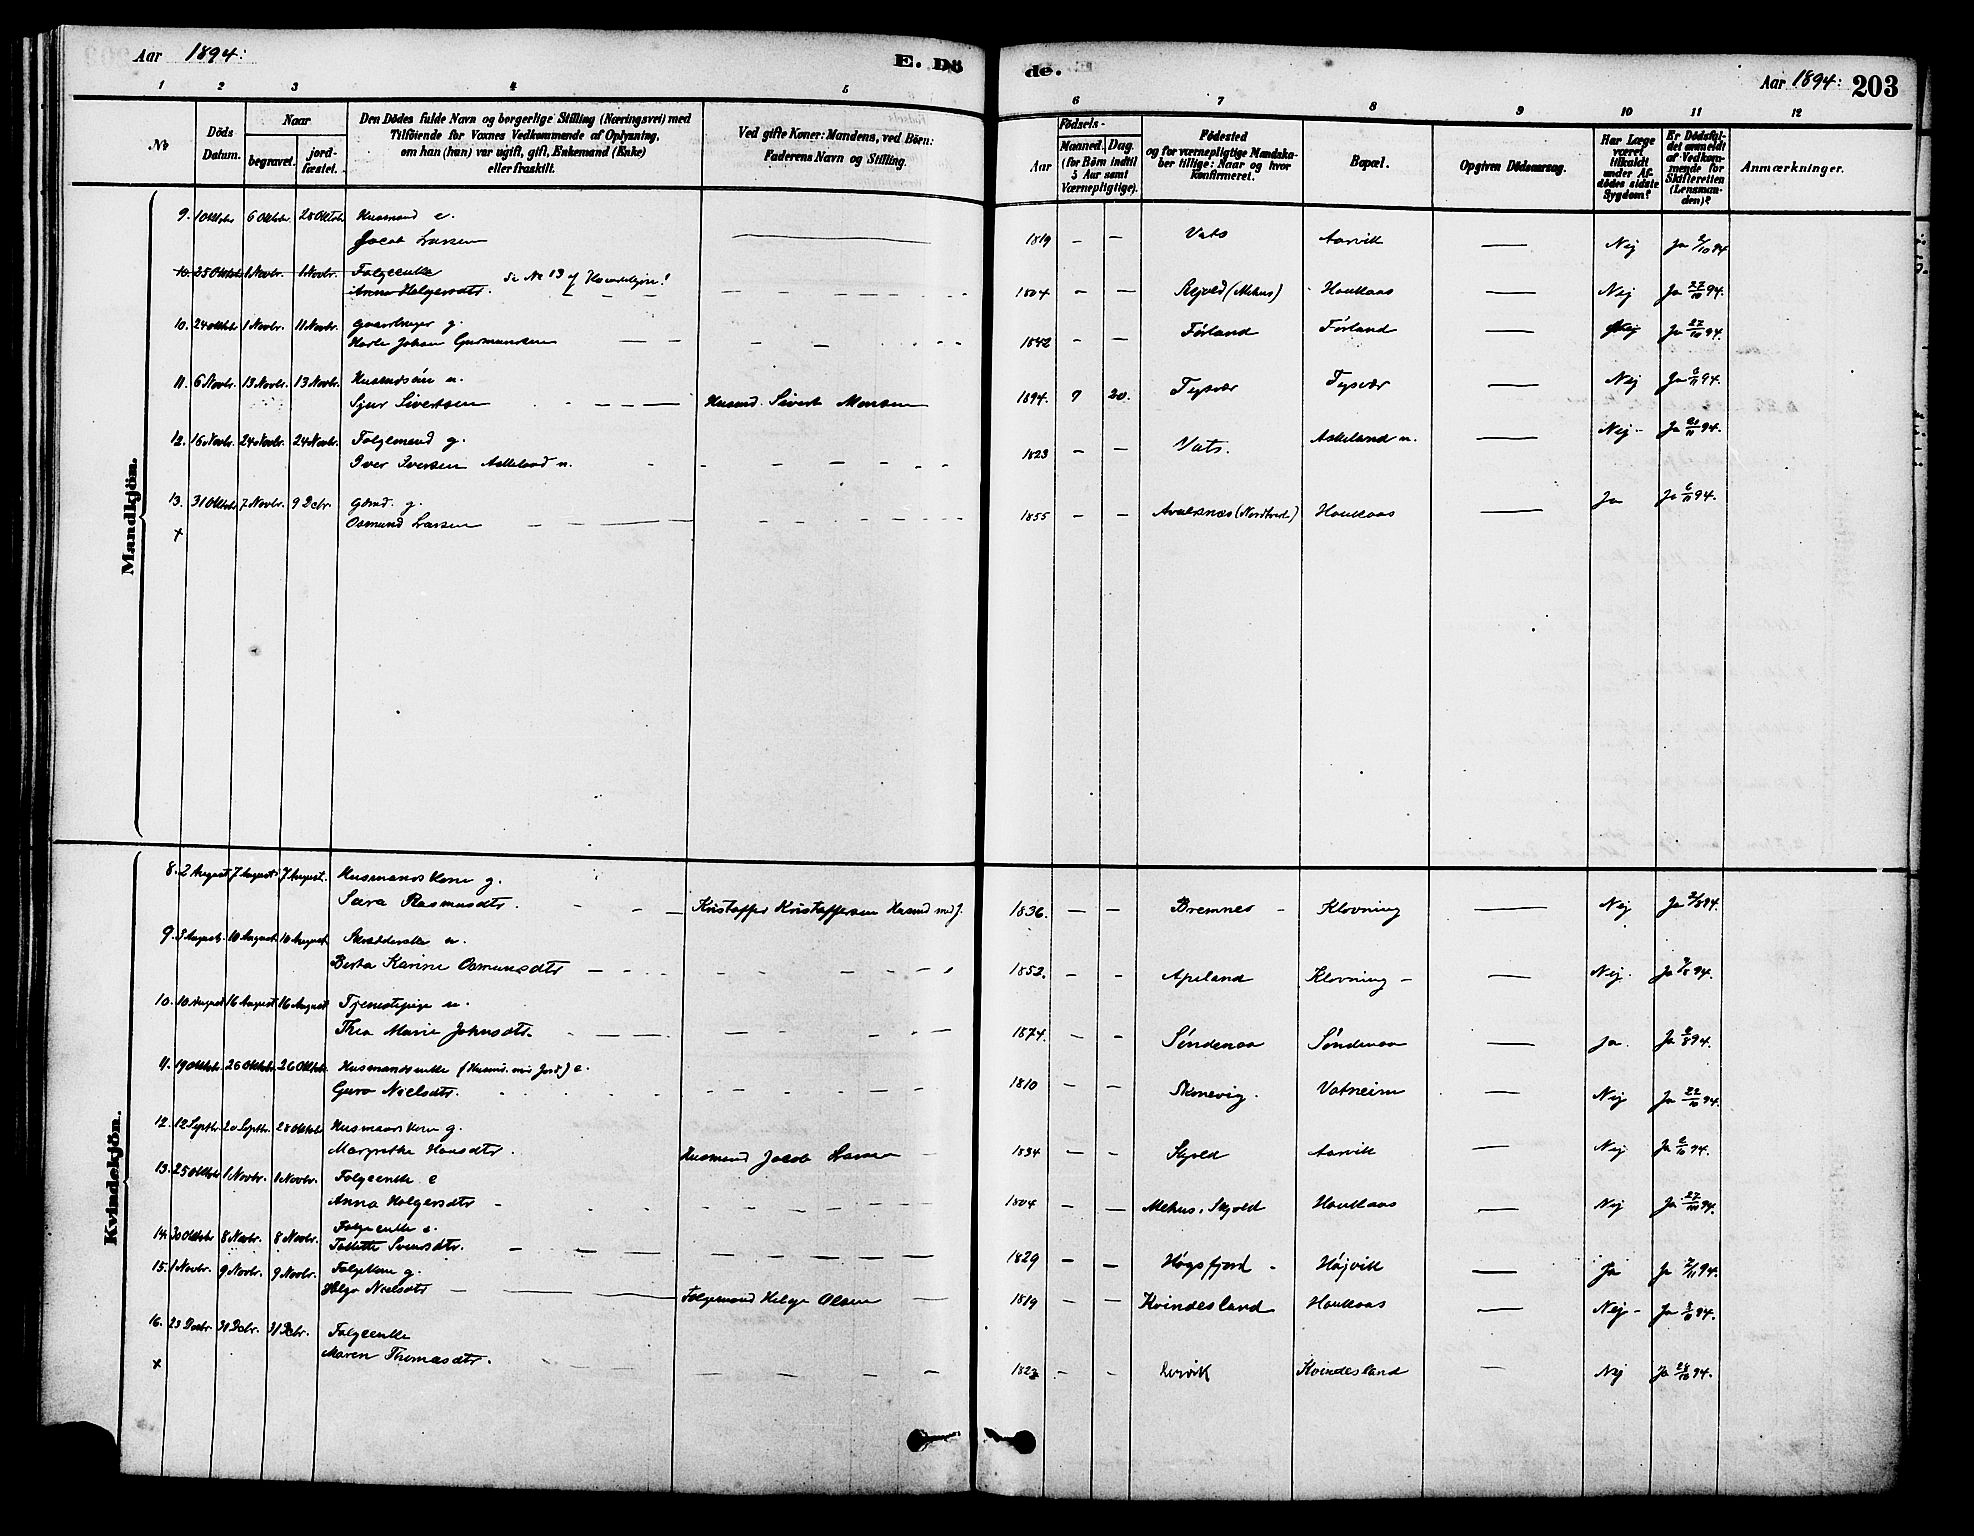 Aar 1894:
E. Dö
de.
Aar 1894: 203
1 2 3 4 5 6 7 8 9 10 11 12
No
Döds Datum.
Naar
begravet.
jord-fæstet.
Den Dödes fulde Navn og borgerlige Stilling (Næringsvei) med
Tilföiende for Voxnes Vedkommende af Oplysning,
om han (hun) var ugift, gift, Enkemand (Enke)
eller fraskilt.
Ved gifte Koner: Mandens, ved Börn:
Faderens Navn og Stilling.
Födsels-
Aar
Maaned. Dag.
(for Börn indtil
5 Aar samt
Værnepligtige).
Födested
og for værnepligtige Mandska-
ber tillige: Naar og hvor
Konfirmeret.
Bopæl.
Opgiven Dödsaarsag.
Har Læge
været
tilkaldt
under Af-
dödes sidste
Sygdom?
Er Dödsfal-
det anmeldt
af Vedkom-
mende for
Skifteretten
(Lensman-
den)?
Anmærkninger.
Mandkjön.
9. 1 Oktbr 6 Oktbr. 28 Oktbr. Husmand e.
Jacob Larsen 1819 – – Vats Aarvik — Nej Ja 2/10 94
10. 25 Oktbr 1 Novbr. 1 Novbr. Folgeenke
Anna Helgersdtr. Se No 13 af Kvindekjøn! 1804 – – Skjold (Mehus) Haukaas — Nej Ja 27/10 94.
10. 24 Oktbr. 1 Novbr. 11 Novbr. Gaardbruger g.
Johan Gudmundsen 1842 – – Førland Førland — Nej Ja 27/10 94.
11. 6 Novbr. 13 Novbr. 13 Novbr. Husmdsøn u.
Sjur Sivertsen Husmd. Sivert Monsen 1894. 7 20. Tysvær Tysvær — Nej Ja 94.
12. 16 Novbr. 24 Novbr. 24 Novbr. Folgemand g.
Iver Iversen Askeland n. 1823 – – Vats. Askeland n. — Nej Ja 20/11 94.
13. 31 Oktbr. 7 Novbr. 9 Dcbr. Gbmd. g.
Osmund Larsen 1855 – – Avaldsnes Haukaas — Ja Ja 6/11 94.
Kvindekjön.
8. 2 August 7 August 7 August. Husmandskone g.
Sara Rasmusdtr. Kristoffer Kristoffersen Husmd med J. 1836. – – Bremnes Klovning — Nej Ja 94.
9. 3 August. 10 August 10 August u.
Berta Karine Osmundsdtr 1852. – – Apeland Klovning — Nej. Ja 94.
10. 10 August 16 August 16 August Tjenestepige u.
Thea Marie Johnsdtr. 1874. – – Søndenaa Søndenaa — Ja. Ja 94.
11. 19 Oktbr. 26 Oktbr. 26 Oktbr. Husmandsenke (Husmd. med Jord) e.
Guro Nielsdtr. 1810 – – Skonevig. Vatneim — Nej Ja 22/10 94.
12. 12 Septbr. 20 Septbr. 28 Oktbr Husmandskone g.
Margrethe Hansdtr. Husmand Jacob Larsen 1834 – – Skjold Aarvik — Nej Ja 94.
13. 25 Oktbr 1 Novbr. 1 Novbr. Folgeenke e
Anna Holgersdtr 1804 – – Mehus, Skjold Haukaas — Nej Ja 27/10 94.
14. 30 Oktbr 8 Novbr. 8 Novbr. Folgeenke e.
Tollette Svensdtr. 1829 – – Høgsfjord Højvik — Ja Ja 94.
15. 1 Novbr. 9 Novbr. 9 Novbr. Folgekone g.
Helga Nielsdtr Folgemand Helge Olsen 1819 – – Kvindesland Haukaas — Nej Ja 94.
16. 23 Decbr. 31 Dcbr. 31 Dcbr. Folgeenke
Maren Thomasdtr. 1823 – – Lervik Kvindesland — Nej Ja 94.